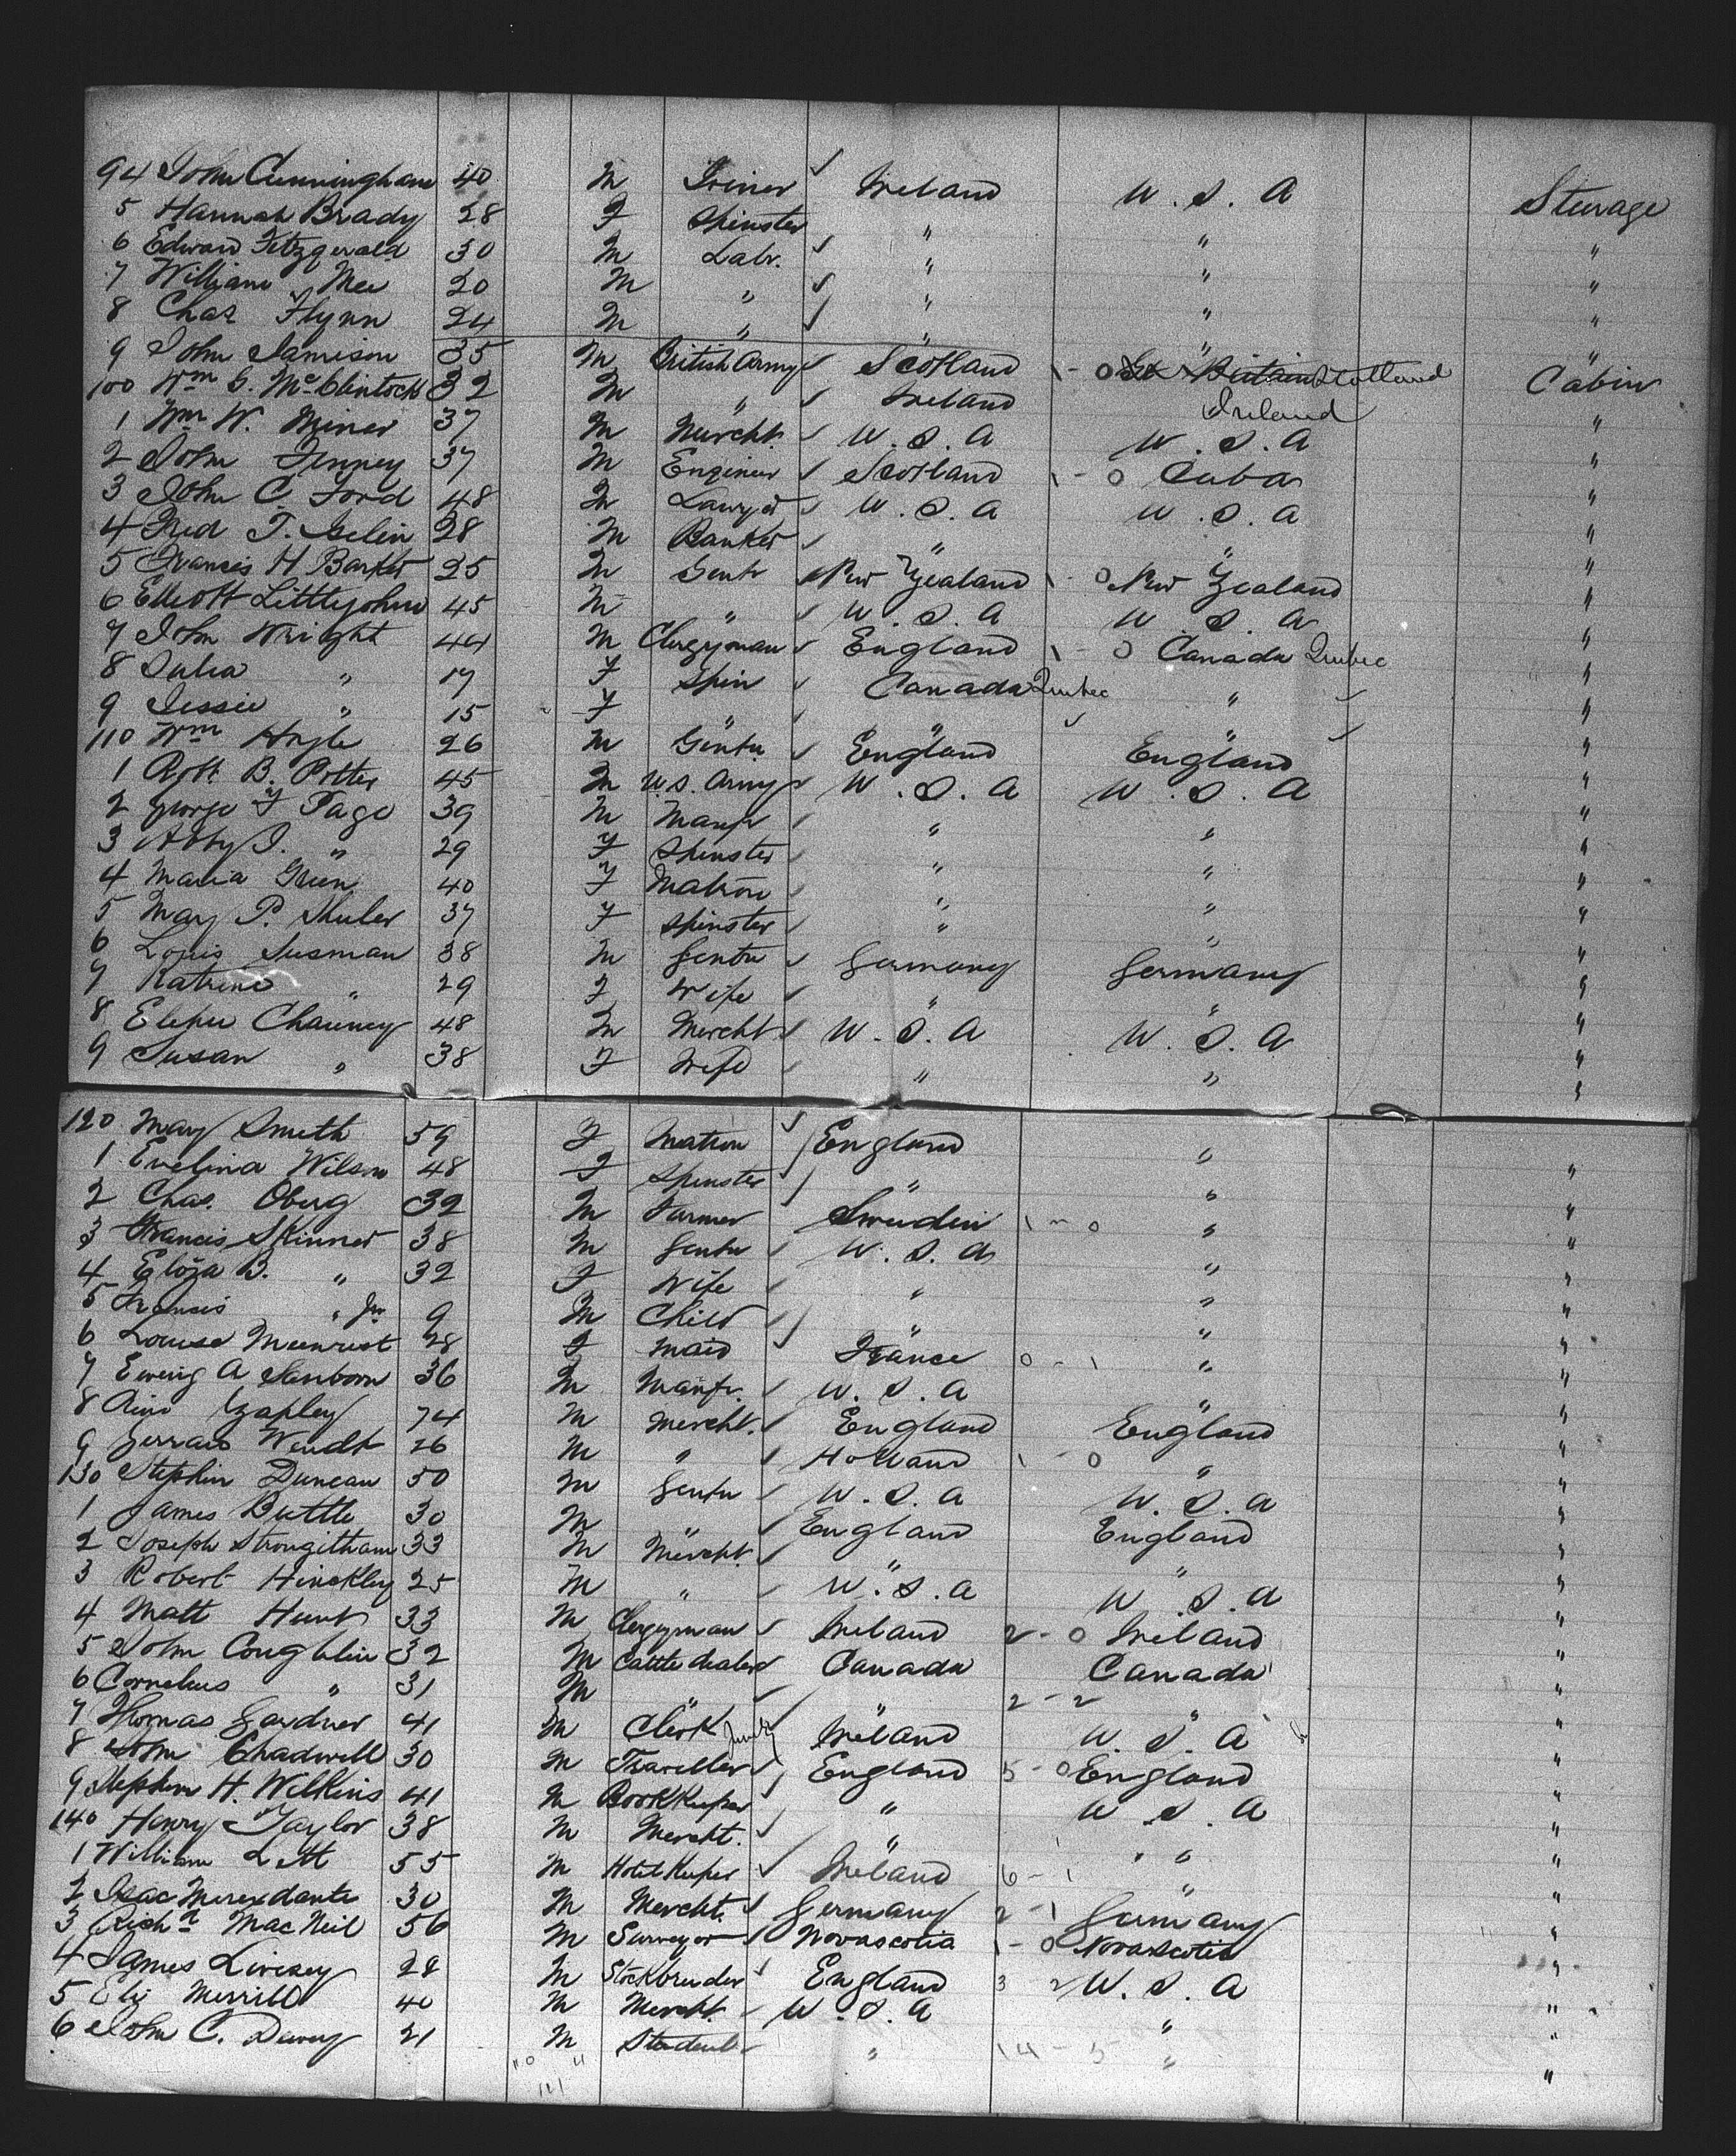 94 John Cunningham 40 M Joiner Ireland U.S.A Steerage
5 Hannah Brady 28 F Spinster " " "
6 Edward Fitzgerald 30 M Labr. " " "
7 William Mee 20 M " " " "
8 Chas Flynn 24 M " " " "
9 John Jamison 35 M British Army Scotland 1-0 Gt Britain Scotland Cabin
100 Wm G. McClintock 32 M " Ireland Ireland "
1 Wm W. Miner 37 M Mercht U.S.A U.S.A "
2 John Tenney 37 M Engineer Scotland 1-0 Cuba "
3 John C. Ford 48 M Lawyer U.S.A U.S.A "
4 Fred T. 28 M Banker " " "
5 Francis H Barker 25 M Gentn New Zealand 1-0 New Zealand "
6 Elliott Littlejohn 45 M " U.S.A U.S.A "
7 John Wright 44 M Clergyman England 1-0 Canada Quebec "
8 Julia " 17 F Spin Canada Quebec " "
9 Jessie " 15 F " " " "
110 Wm 26 M Gentn England England "
1 Robt. B. Potter 45 M U.S. Army U.S.A U.S.A "
2 George F Page 39 M Manfr " " "
3 Abby J. " 29 F Spinster " " "
4 Maria Green 40 F Matron " " "
5 Mary P. Shuler 37 F Spinster " " "
6 Louis Susman 38 M Gentn Germany Germany "
7 Katrine " 29 F Wife " " "
8 Chauncy 48 M Mercht U.S.A U.S.A "
9 Susan " 38 F Wife " " "
120 Mary Smith 59 F Matron England " "
1 Evelina Wilson 48 F Spinster " " "
2 Chas. Oberg 32 M Farmer Sweden 1-0 " "
3 Francis Skinner 38 M Gentn U.S.A " "
4 Eliza B. " 32 F Wife " " "
5 Francis " Jr 9 M Child " " "
6 Louise 28 F Maid France 0-1 " "
7 Ewing A Sanborn 36 M Manfr. U.S.A " "
8 74 M Mercht. England England "
9 Wendt 26 M " Holland 1-0 " "
130 Stephen Duncan 50 M Gentn U.S.A U.S.A "
1 James Buttle 30 M " England England "
2 Joseph Strongitham 33 M Mercht. " " "
3 Robert Hinckley 25 M " U.S.A U.S.A "
4 Matt Hunt 33 M Clergyman Ireland 2-0 Ireland "
5 John Coughlin 32 M Cattle dealer Canada Canada "
6 Cornelius " 31 M " " 2-2 " "
7 Thomas Gardner 41 M Clerk Ireland U.S.A "
8 John Chadwell 30 M Traveller England 5-0 England "
9 Stephen H. Wilkins 41 M Bookkeeper " U.S.A "
140 Henry Taylor 38 M Mercht. " " "
1 William Lett 55 M Hotel Keeper Ireland 6-1 " "
2 Isac Merendante 30 M Mercht. Germany 2-1 Germany "
3 Richd MacNeil 56 M Surveyor Novascotia 1-0 Novascotia "
4 James Livesey 28 M Stockbreeder England 3-2 U.S.A "
5 Eli Merrill 40 M Mercht. U.S.A " "
6 John C. Davey 21 M Student " 14-5 " "
121